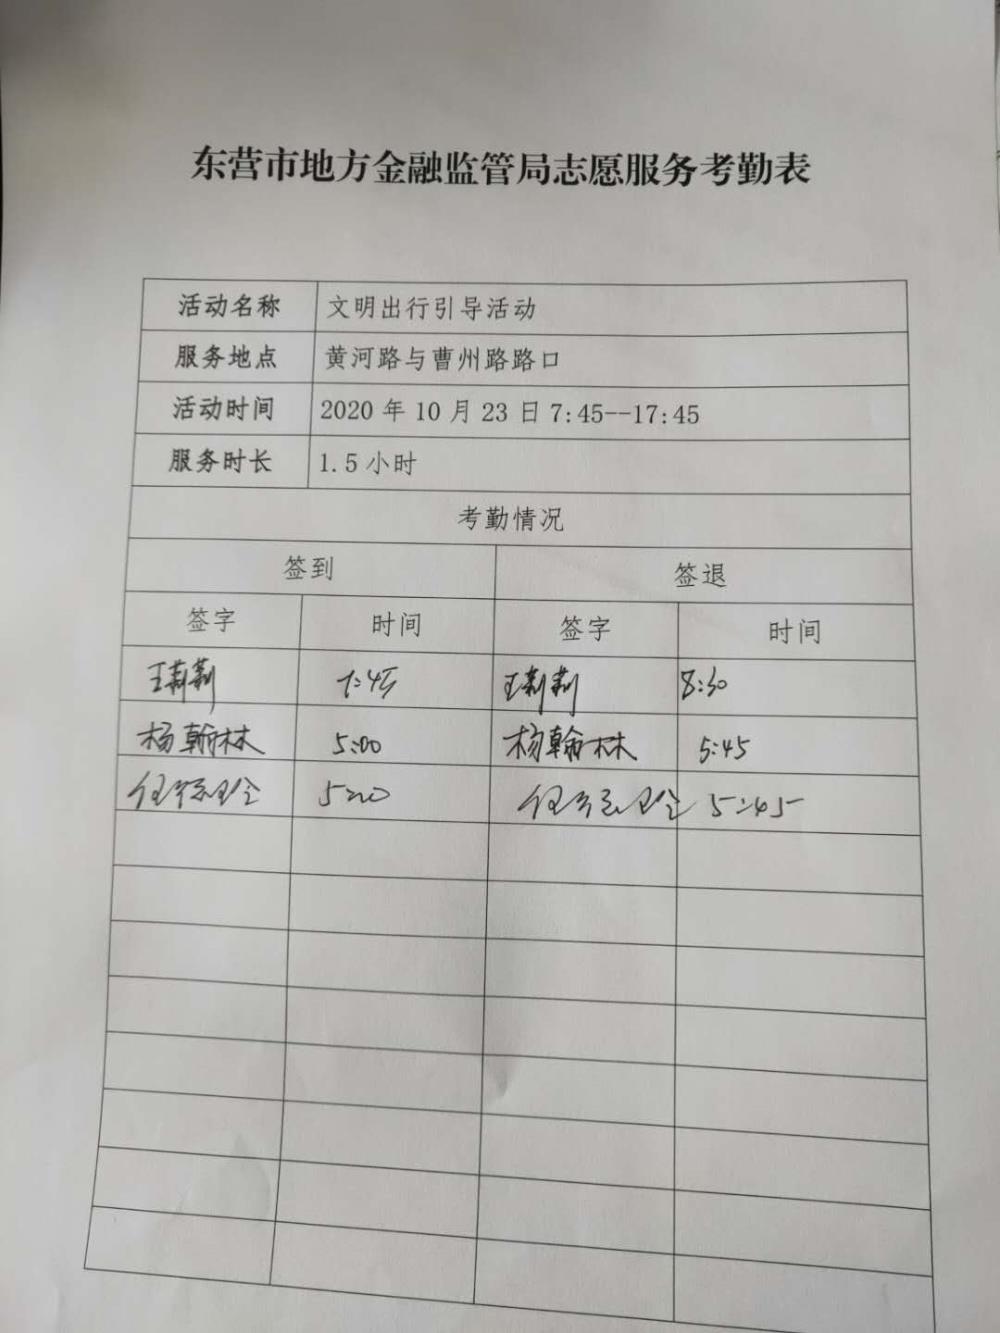 东营市地方金融监管局志愿服务考勤表
活动名称 文明出行引导活动
服务地点 黄河路与曹州路路口
活动时间 2020 年 10 月 23 日 7:45--17:45
服务时长 1.5 小时
考勤情况
签到 签退
签字 时间 签字 时间
王莉莉 7:45 王莉莉 8:30
杨翰林 5:00 杨翰林 5:45
5:20 5:45